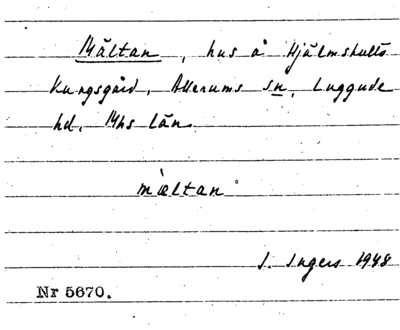 Mältan, hus å Hjälmshults
Kungsgård, Allerums sn, Luggude
hd. Mhs län.
mæltan
I. Ingers 1948
Nr 5670.